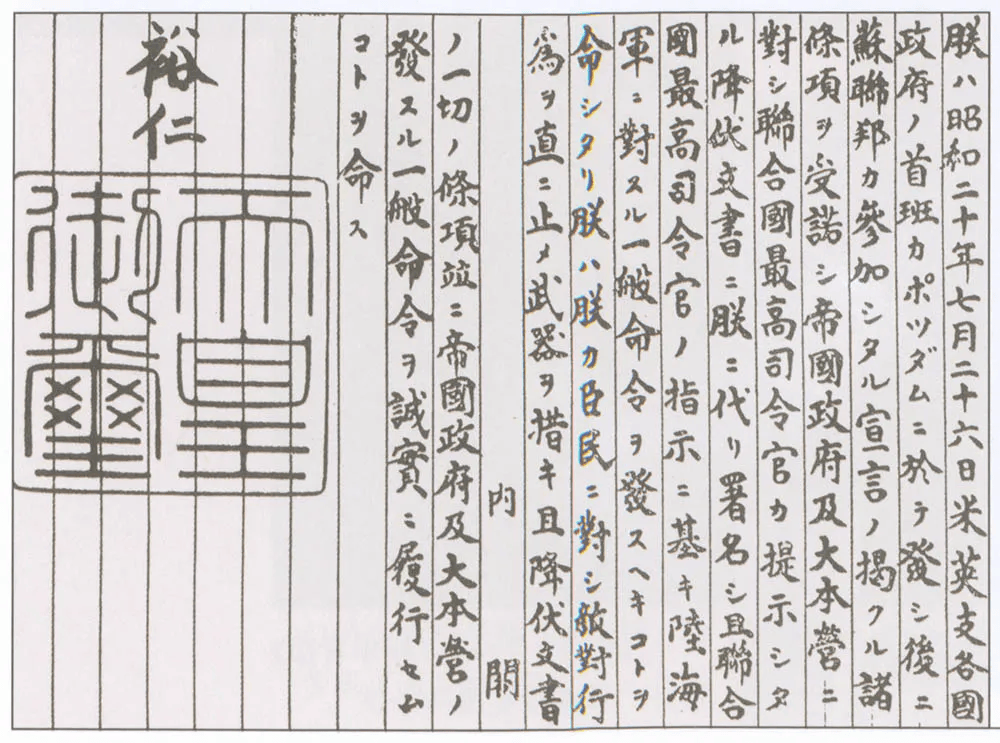 朕ハ昭和二十年七月二十六日米英支各國
政府ノ首班カポツダムニ於テ發シ後ニ
蘇聯邦カ參加シタル宣言ノ揭クル諸
條項ヲ受諾シ帝國政府及大本營ニ
對シ聯合國最高司令官カ提示シタ
ル降伏文書ニ朕ニ代リ署名シ且聯合
國最高司令官ノ指示ニ基キ陸海
軍ニ對スル一般命令ヲ發スヘキコトヲ
命シタリ朕ハ朕カ臣民ニ對シ敵對行
爲ヲ直ニ止メ武器ヲ措キ且降伏文書
内閣
ノ一切ノ條項竝ニ帝國政府及大本營ノ
發スル一般命令ヲ誠實ニ履行セム
コトヲ命ス
裕仁
天皇
御璽